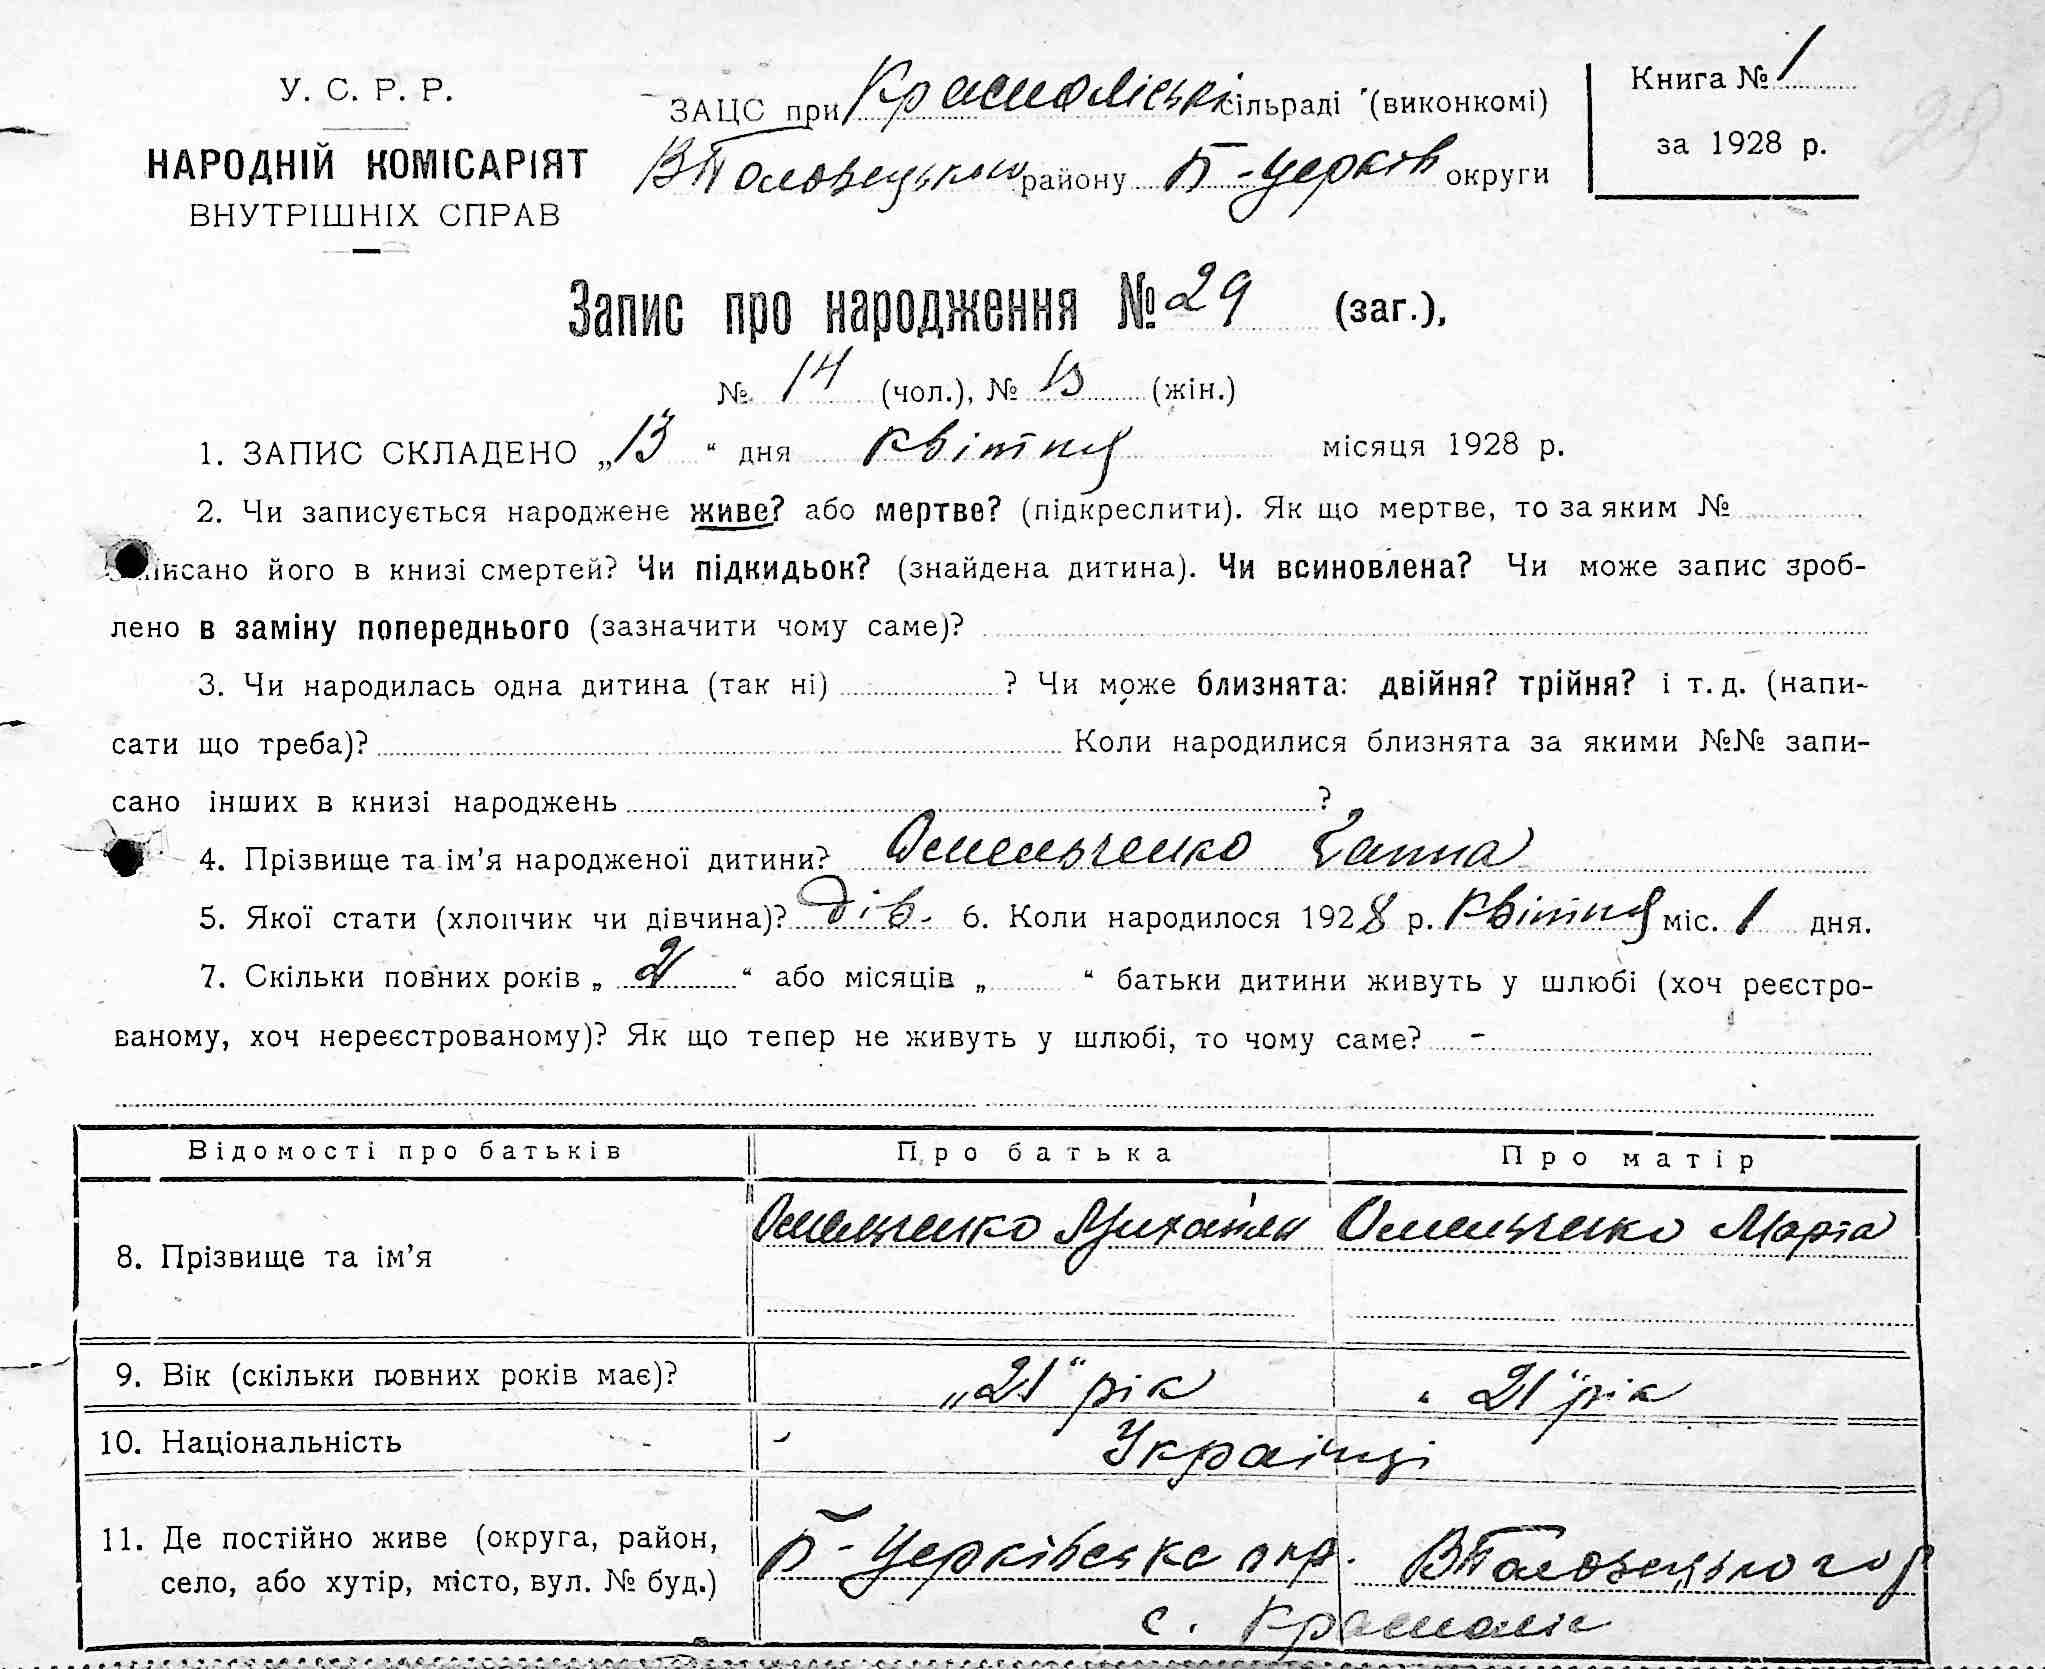 У. С. Р. Р.
НАРОДНІЙ КОМІСАРІЯТ
ВНУТРІШНІХ СПРАВ
ЗАЦС при Красноліські сільраді (виконкомі)
ВПоловецького району Б-Церків округи
Книга № 1
за 1928 р.
29
Запис про народження № 29 (заг.),
№ 14 (чол.), № 15 (жін.)
1. ЗАПИС СКЛАДЕНО „13“ дня квітня місяця 1928 р.
2. Чи записується народжене живе? або мертве? (підкреслити). Як що мертве, то за яким №
записано його в книзі смертей? Чи підкидьок? (знайдена дитина). Чи всиновлена? Чи може запис зроб-
лено в заміну попереднього (зазначити чому саме)?
3. Чи народилась одна дитина (так ні) ? Чи може близнята: двійня? трійня? і т. д. (напи-
сати що треба)? Коли народилися близнята за якими №№ запи-
сано інших в книзі народжень ?
4. Прізвище та ім’я народженої дитини? Омельченко Ганна
5. Якої стати (хлопчик чи дівчина)? дів. 6. Коли народилося 1928 р. квітня міс. 1 дня.
7. Скільки повних років „ 2 “ або місяців „ “ батьки дитини живуть у шлюбі (хоч реєстро-
ваному, хоч нереєстрованому)? Як що тепер не живуть у шлюбі, то чому саме? -
Відомості про батьків Про батька Про матір
8. Прізвище та ім’я Омельченко Михайло Омельченко Марта
9. Вік (скільки повних років має)? „21“ рік „21“ рік
10. Національність Українці
11. Де постійно живе (округа, район,
село, або хутір, місто, вул. № буд.)
Б-Церківське окр. ВПоловецького р
с. Красноліс